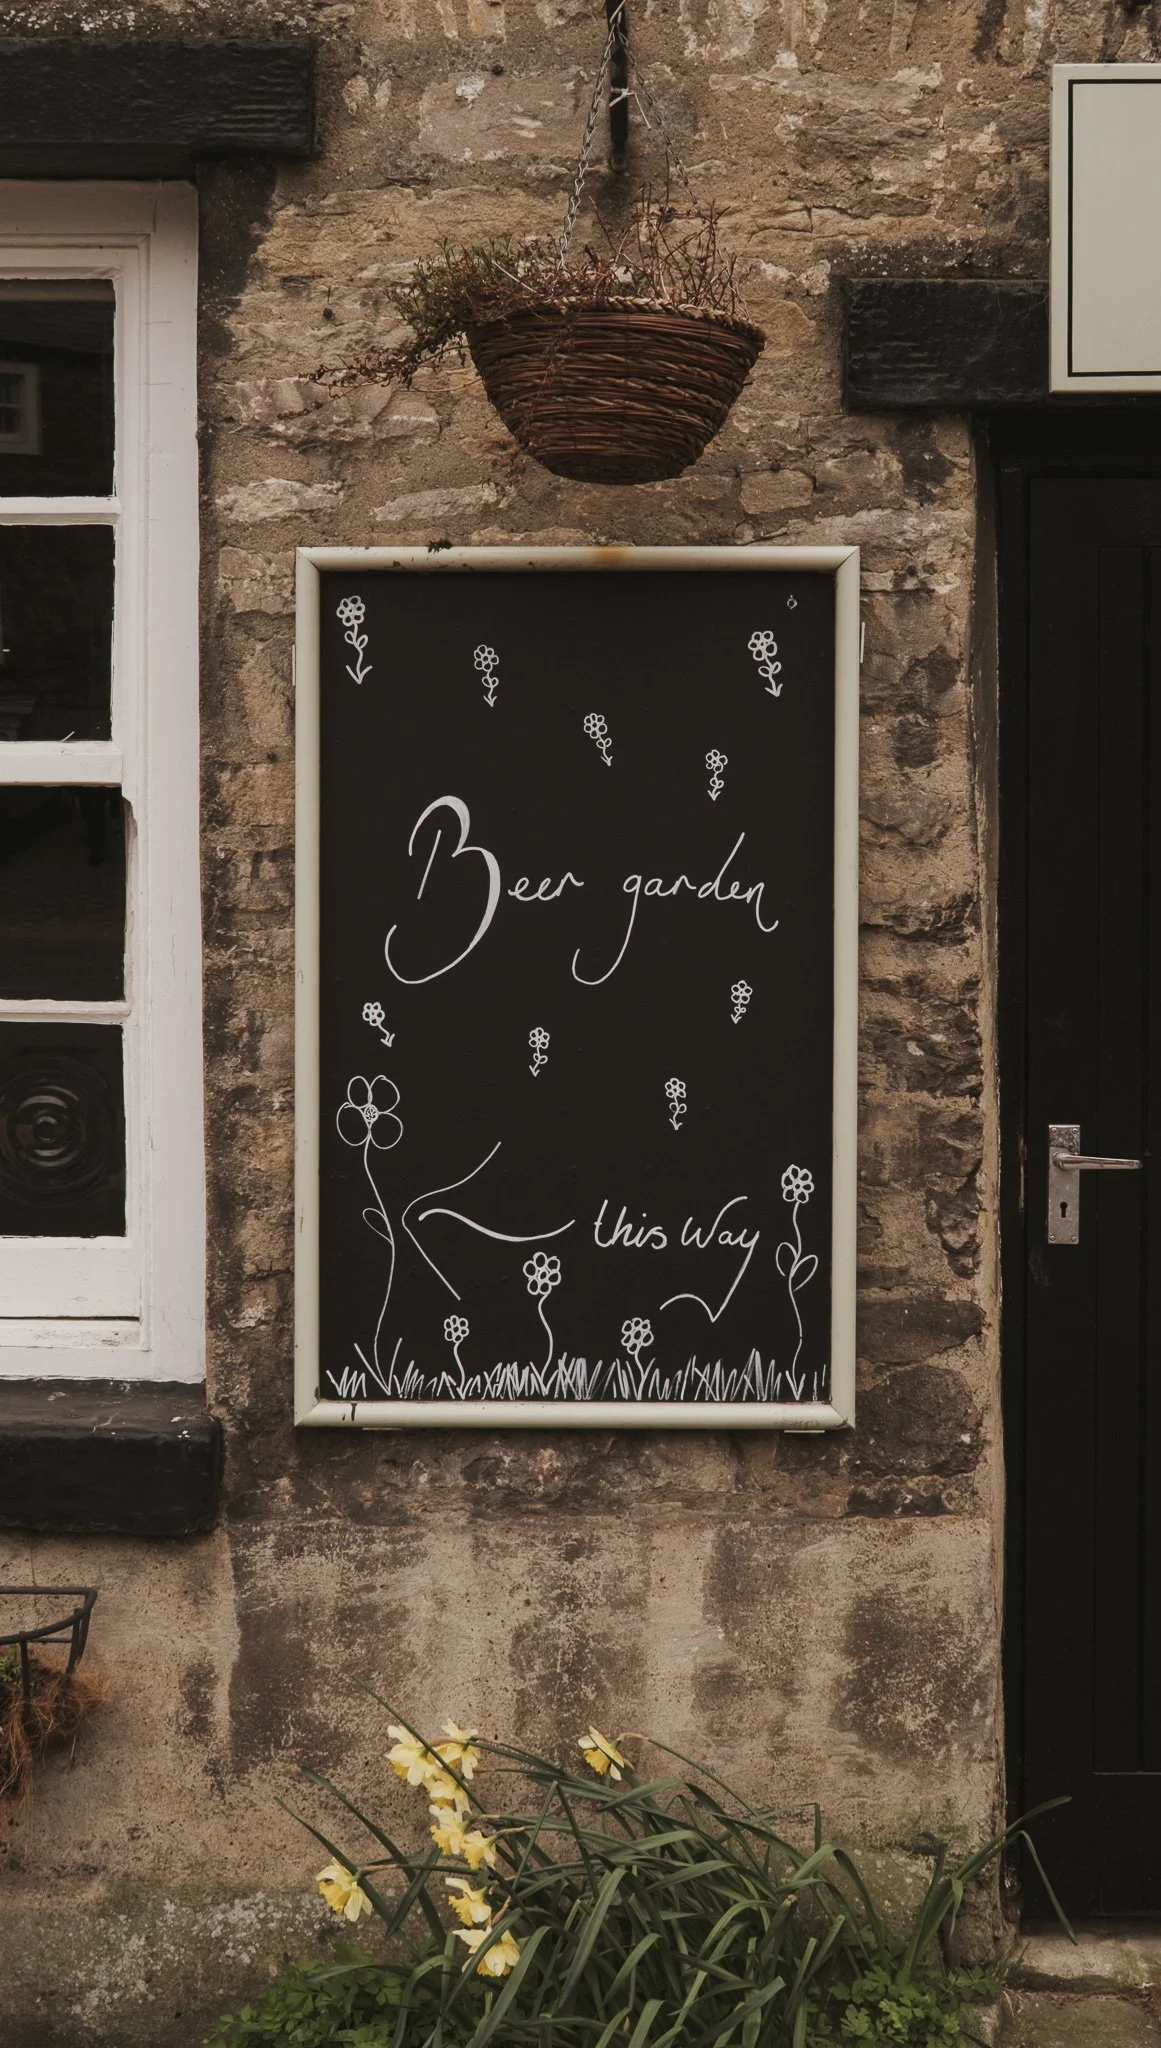 Beer garden
this way